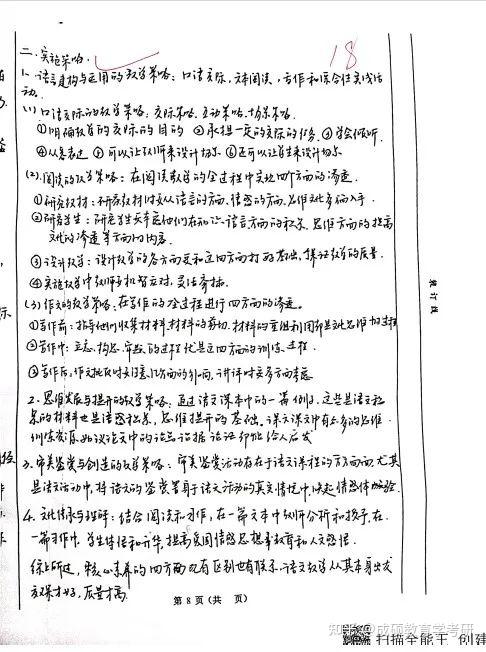 二、实施策略.
18
1、语言建构与运用的教学策略：口语交际，文本阅读，写作和综合性实践活
动。
(1) 口语交际的教学策略：交际策略、互动策略、情景策略.
①明确教学的交际的目的 ②承担一定的交际的任务 ③学会倾听
④从容表达 ⑤可以让教师来设计情景 ⑥还可以让学生来设计情景
(2).阅读的教学策略：在阅读教学的全过程中实现四个方面的渗透.
①研究教材：研究教材时要从语言的方面、情感的方面、思维文化多角入手.
②研究学生：研究学生要考虑他们在知识、语言方面的积累、思维方面的提高
文化的渗透等方面的内容.
③设计教学：设计教学的各方面要和这四方面打好基础，保证教学的质量.
④实施教学中教师要机智应对，灵活
(3)作文的教学策略：在写作的全过程进行四方面的渗透.
①写作前：指导他们收集材料，材料的剪切、材料的重组利用都是文化思维加工过程
②写作中：立意、构思、的过程就是这四方面的训练过程.
③写作后：作文批改时要注意几方面的影响，讲评时要多方面考虑
2、思维发展与提升的教学策略：通过语文课本中的一篇例子，这些是语文积
累的材料也是语感积累、思维提升的基础。课文课文中有太多的思维
训练资源，如议论文中的论点论据论证都能给人启发
3、审美鉴赏与创造的教学策略：审美鉴赏活动存在于语文课程的方方面面，尤其
是语文活动中，将语文的鉴赏置身于语文活动的真实情境中，唤起情感体验.
4、文化传承与理解：结合阅读和习作，在一篇文本中教师分析和指导，在
一篇习作中，学生体悟和升华，提高爱国情感思想教育和人文感悟.
综上所述，核心素养的四方面，既有区别也有联系，语文教学从其本身出发
方得才好，质量才高.
装订线
第 8 页(共 页)
知乎 @成硕教育学考研
扫描全能王 创建